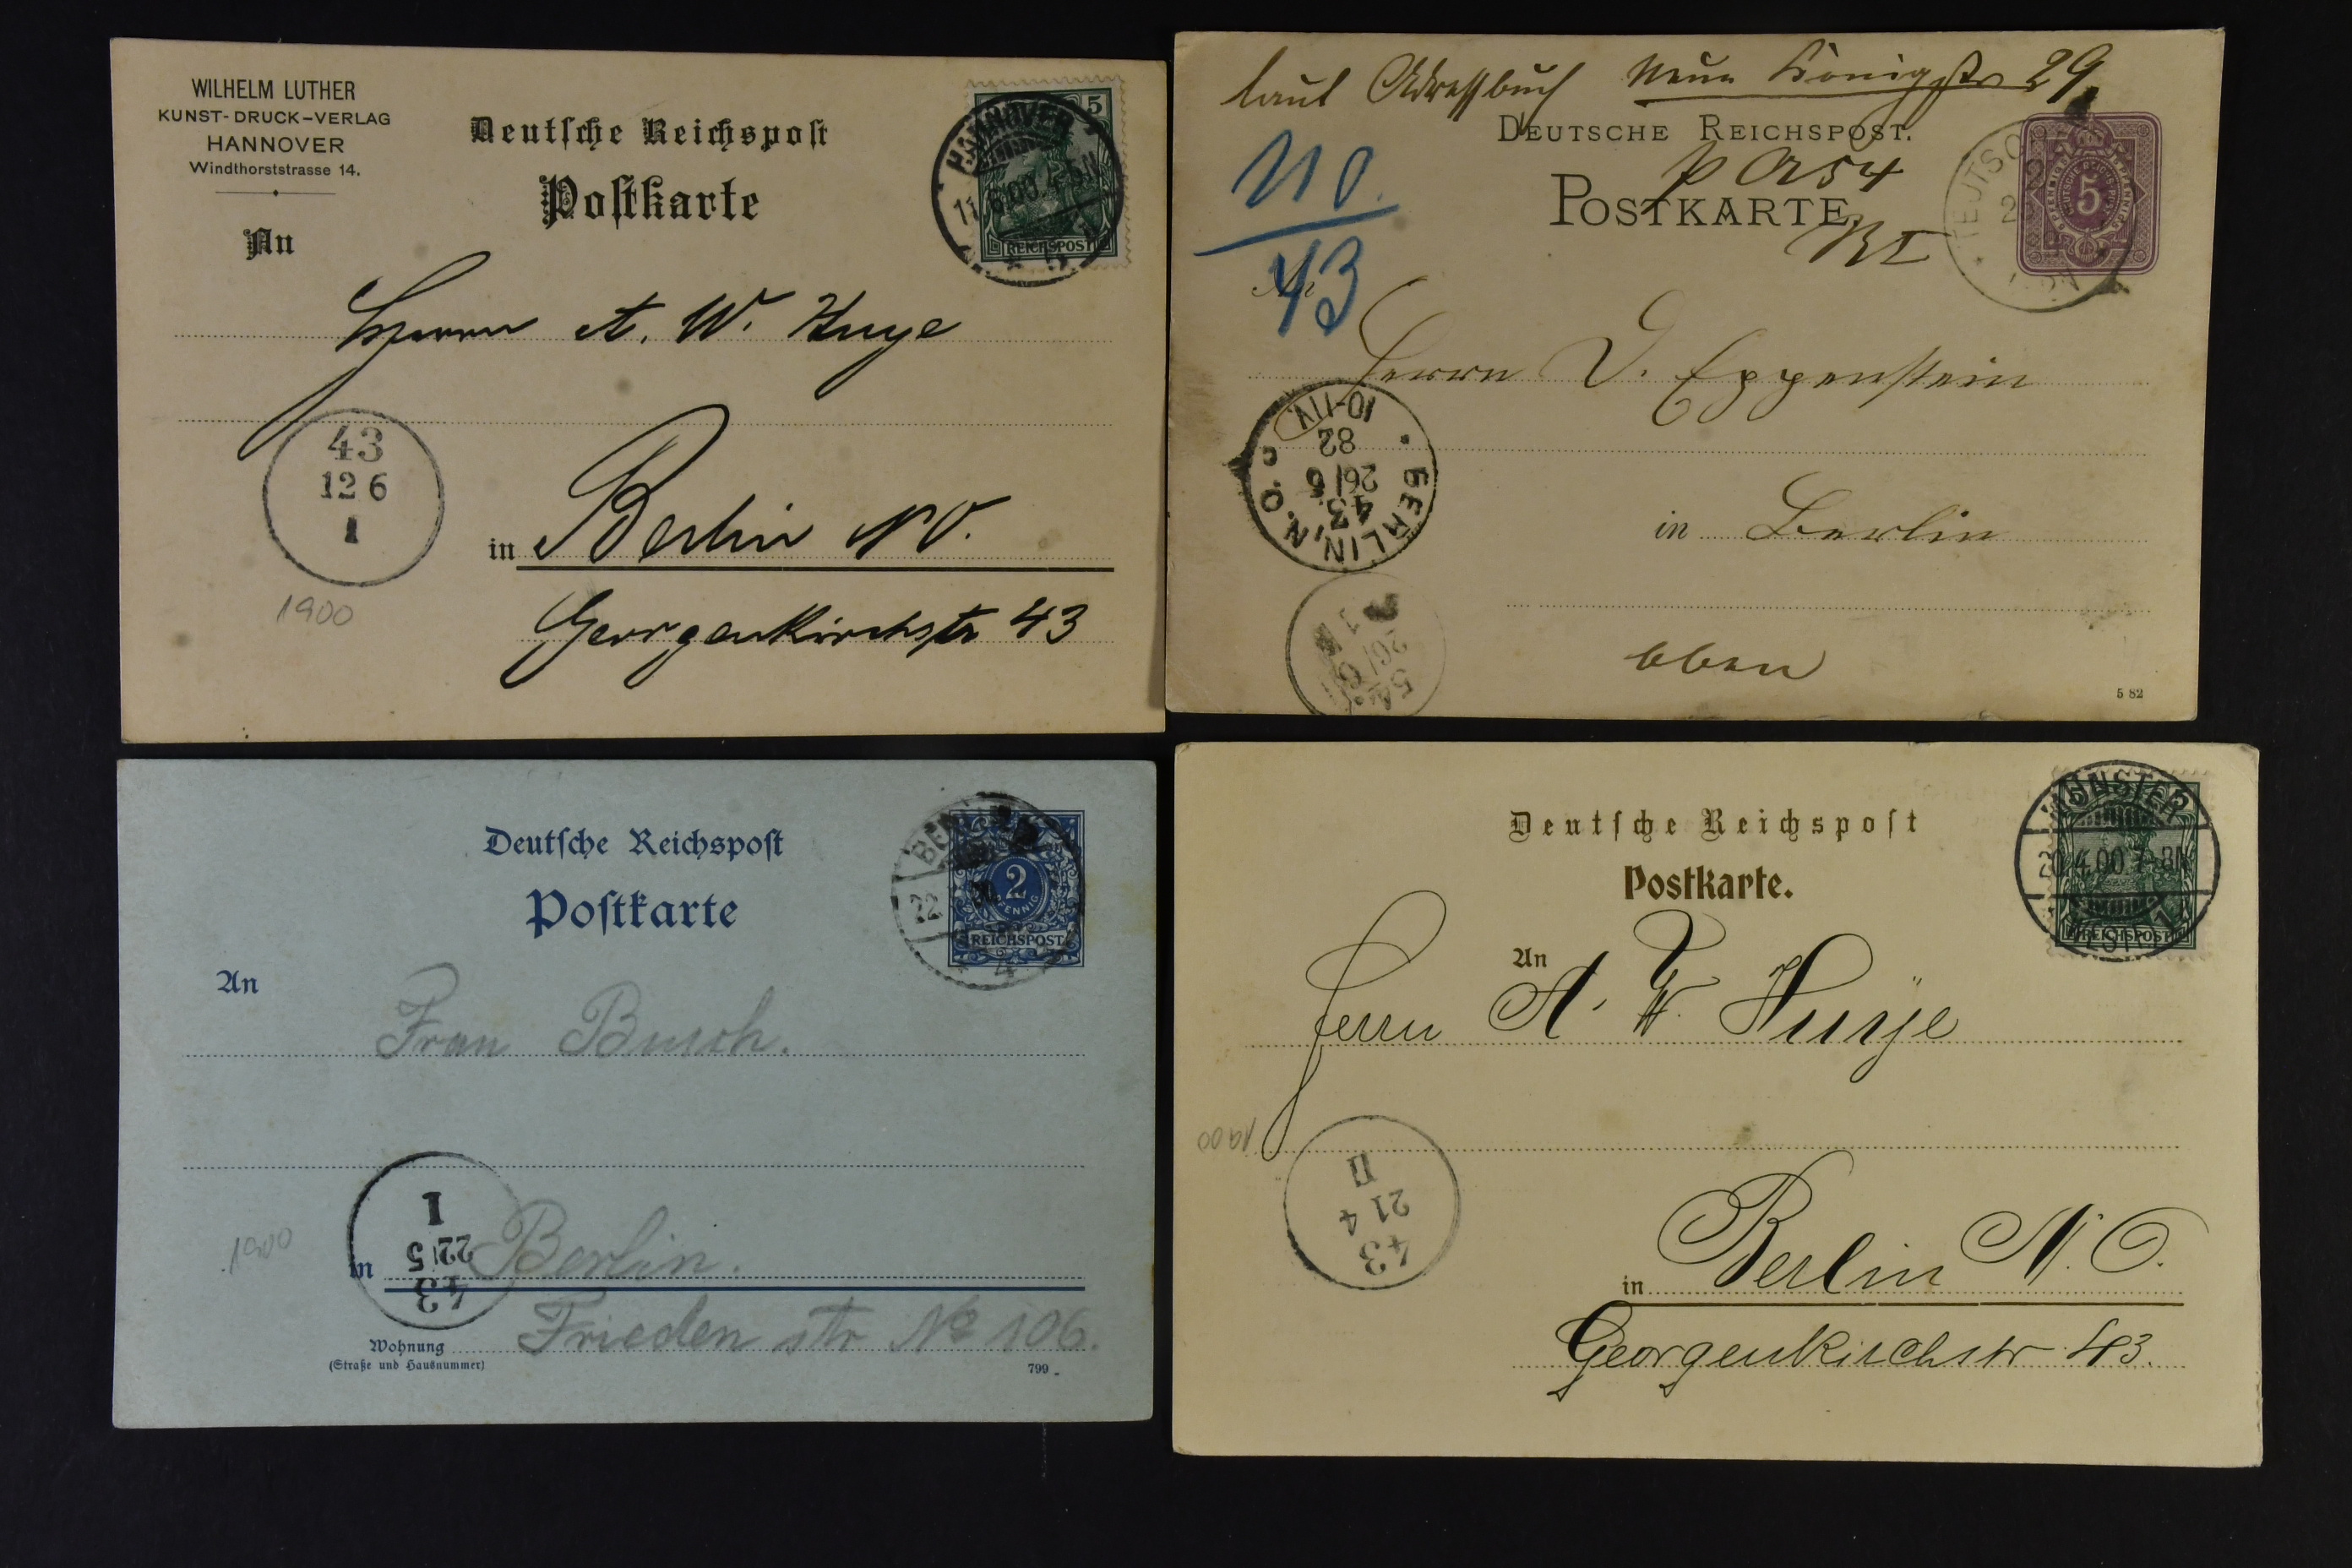 WILHELM LUTHER
KUNST-DRUCK-VERLAG
HANNOVER
Windthorststrasse 14.
Deutsche Reichspost
Postkarte
An
5
REICHSPOST
HANNOVER
11.6.00.4-5N
Herrn A. W. Huye
43
12 6
1
in Berlin NO.
Georgenkirchstr 43
1900
laut Adressbuch Neue Königstr 29.
DEUTSCHE REICHSPOST.
POSTKARTE
p a 54
NO.
43
An
5
Herrn D. Eppenstein
BERLIN, N.O.
43
26/6
82
10-11V.
in Berlin
54
26/6
oben
5 82
Deutsche Reichspost
Postkarte
An
2
PFENNIG
REICHSPOST
22
Frau Busch.
43
22/5
1
in Berlin.
1900
Wohnung
(Straße und Hausnummer)
Frieden str No 106.
799
Deutsche Reichspost
Postkarte.
An
REICHSPOST
MÜNSTER
20.4.00.7-8N
Herrn A. W. Huye
1900
43
21 4
II
in Berlin N. O.
Georgenkirchstr 43.